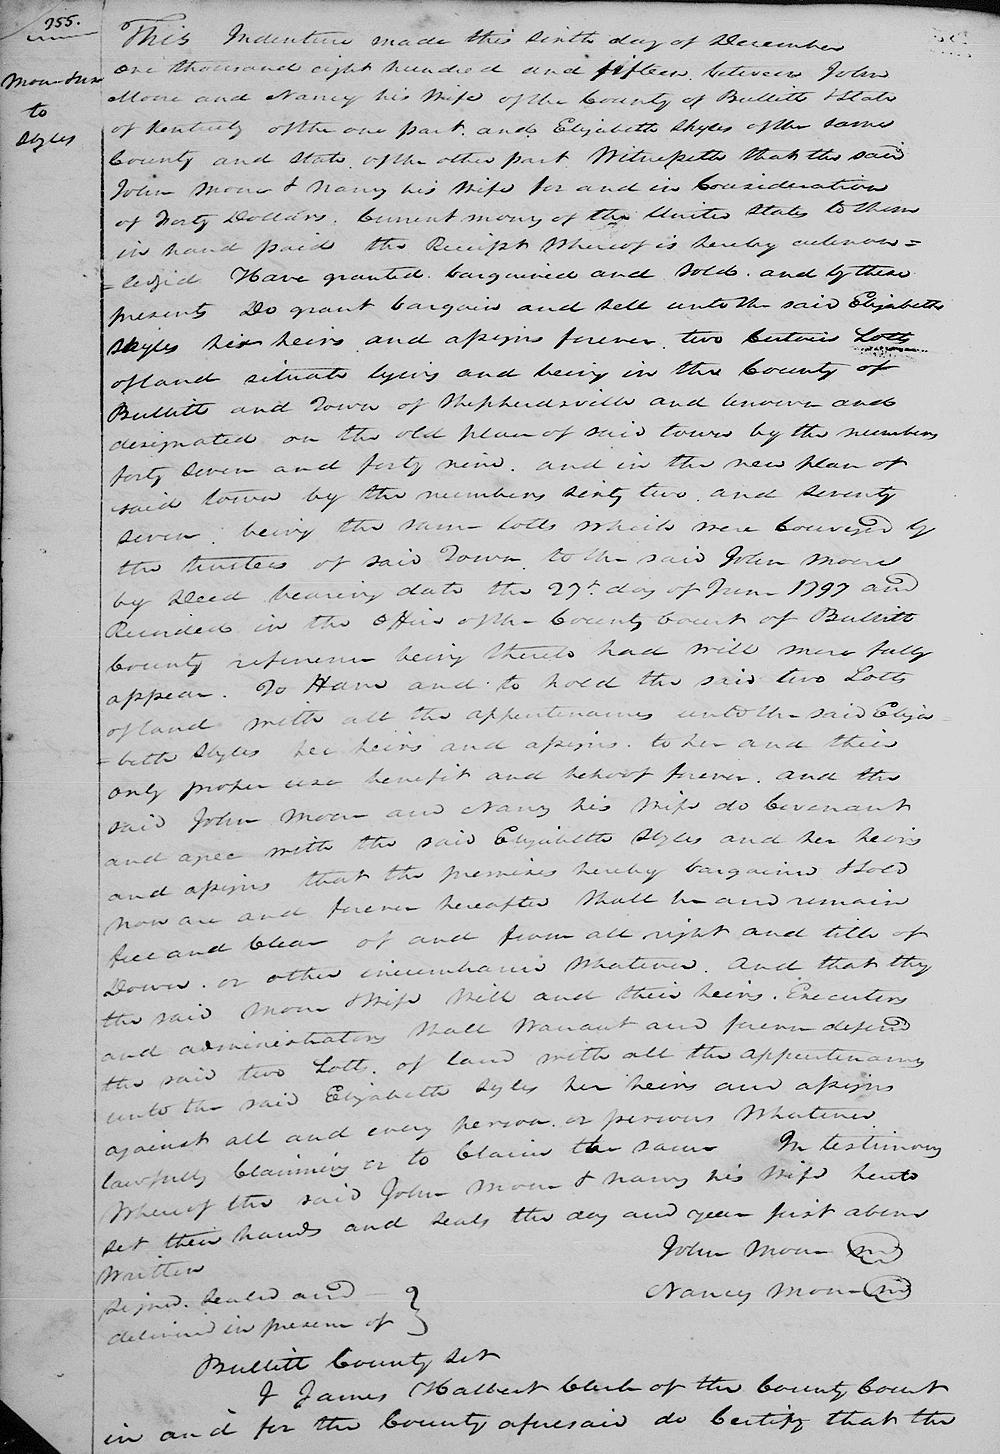 255.
Moore &ux
to
Skyles
This Indenture made this Sixth day of December
one thousand eight hundred and fifteen between John
Moore and Nancy his Wife of the County of Bullitt & State
of Kentucky of the one part and Elizabeth Skyles of the same
County and State of the other part Witnesseth that the said
John Moore & Nancy his Wife for and in Consideration
of Forty Dollars Current money of the United States to them
in hand paid the Receipt Whereof is hereby acknow=
=ledgd Have granted bargained and sold and by these
presents Do grant bargain and sell unto the said Elizabeth
Skyles her heirs and assigns forever two Certain Lotts
of land situate lying and being in the County of
Bullitt and Town of Shepherdsville and known and
designated on the old plan of said town by the numbers
forty seven and forty nine and in the new plan of
said town by the numbers sixty two and seventy
seven being the same lotts which were Conveyed by
the trustees of said Town to the said John Moore
by Deed bearing date the 27t day of June 1797 and
Recorded in the Office of the County Court of Bullitt
County reference being thereto had will more fully
appear. To Have and to hold the said two Lotts
of land with all the appurtenances unto the said Eliza
=beth Skyles her heirs and assigns to her and their
only proper use benefit and behoof forever. and the
said John Moore and Nancy his Wife do Covenant
and agree with the said Elizabeth Skyles and her heirs
and assigns that the premises hereby bargained & sold
now are and forever hereafter shall be and remain
free and Clear of and from all right and title of
Dower or other incumbrance Whatever. And that they
the said Moore & Wife Will and their heirs. Executors
and administrators shall Warrant and forever defend
the said two Lotts of land with all the appurtenances
unto the said Elizabeth Skyles her heirs and assigns
against all and every person or persons Whatever
lawfully Claiming or to Claim the same In testimony
Whereof the said John Moore & Nancy his Wife hereto
set their hands and seals the day and year first above
Written
John Moore
Nancy Moore
Signed. Sealed and
delivered in presence of
Bullitt County Sct
I James Halbert Clerk of the County Court
in and for the County aforesaid do Certify that the